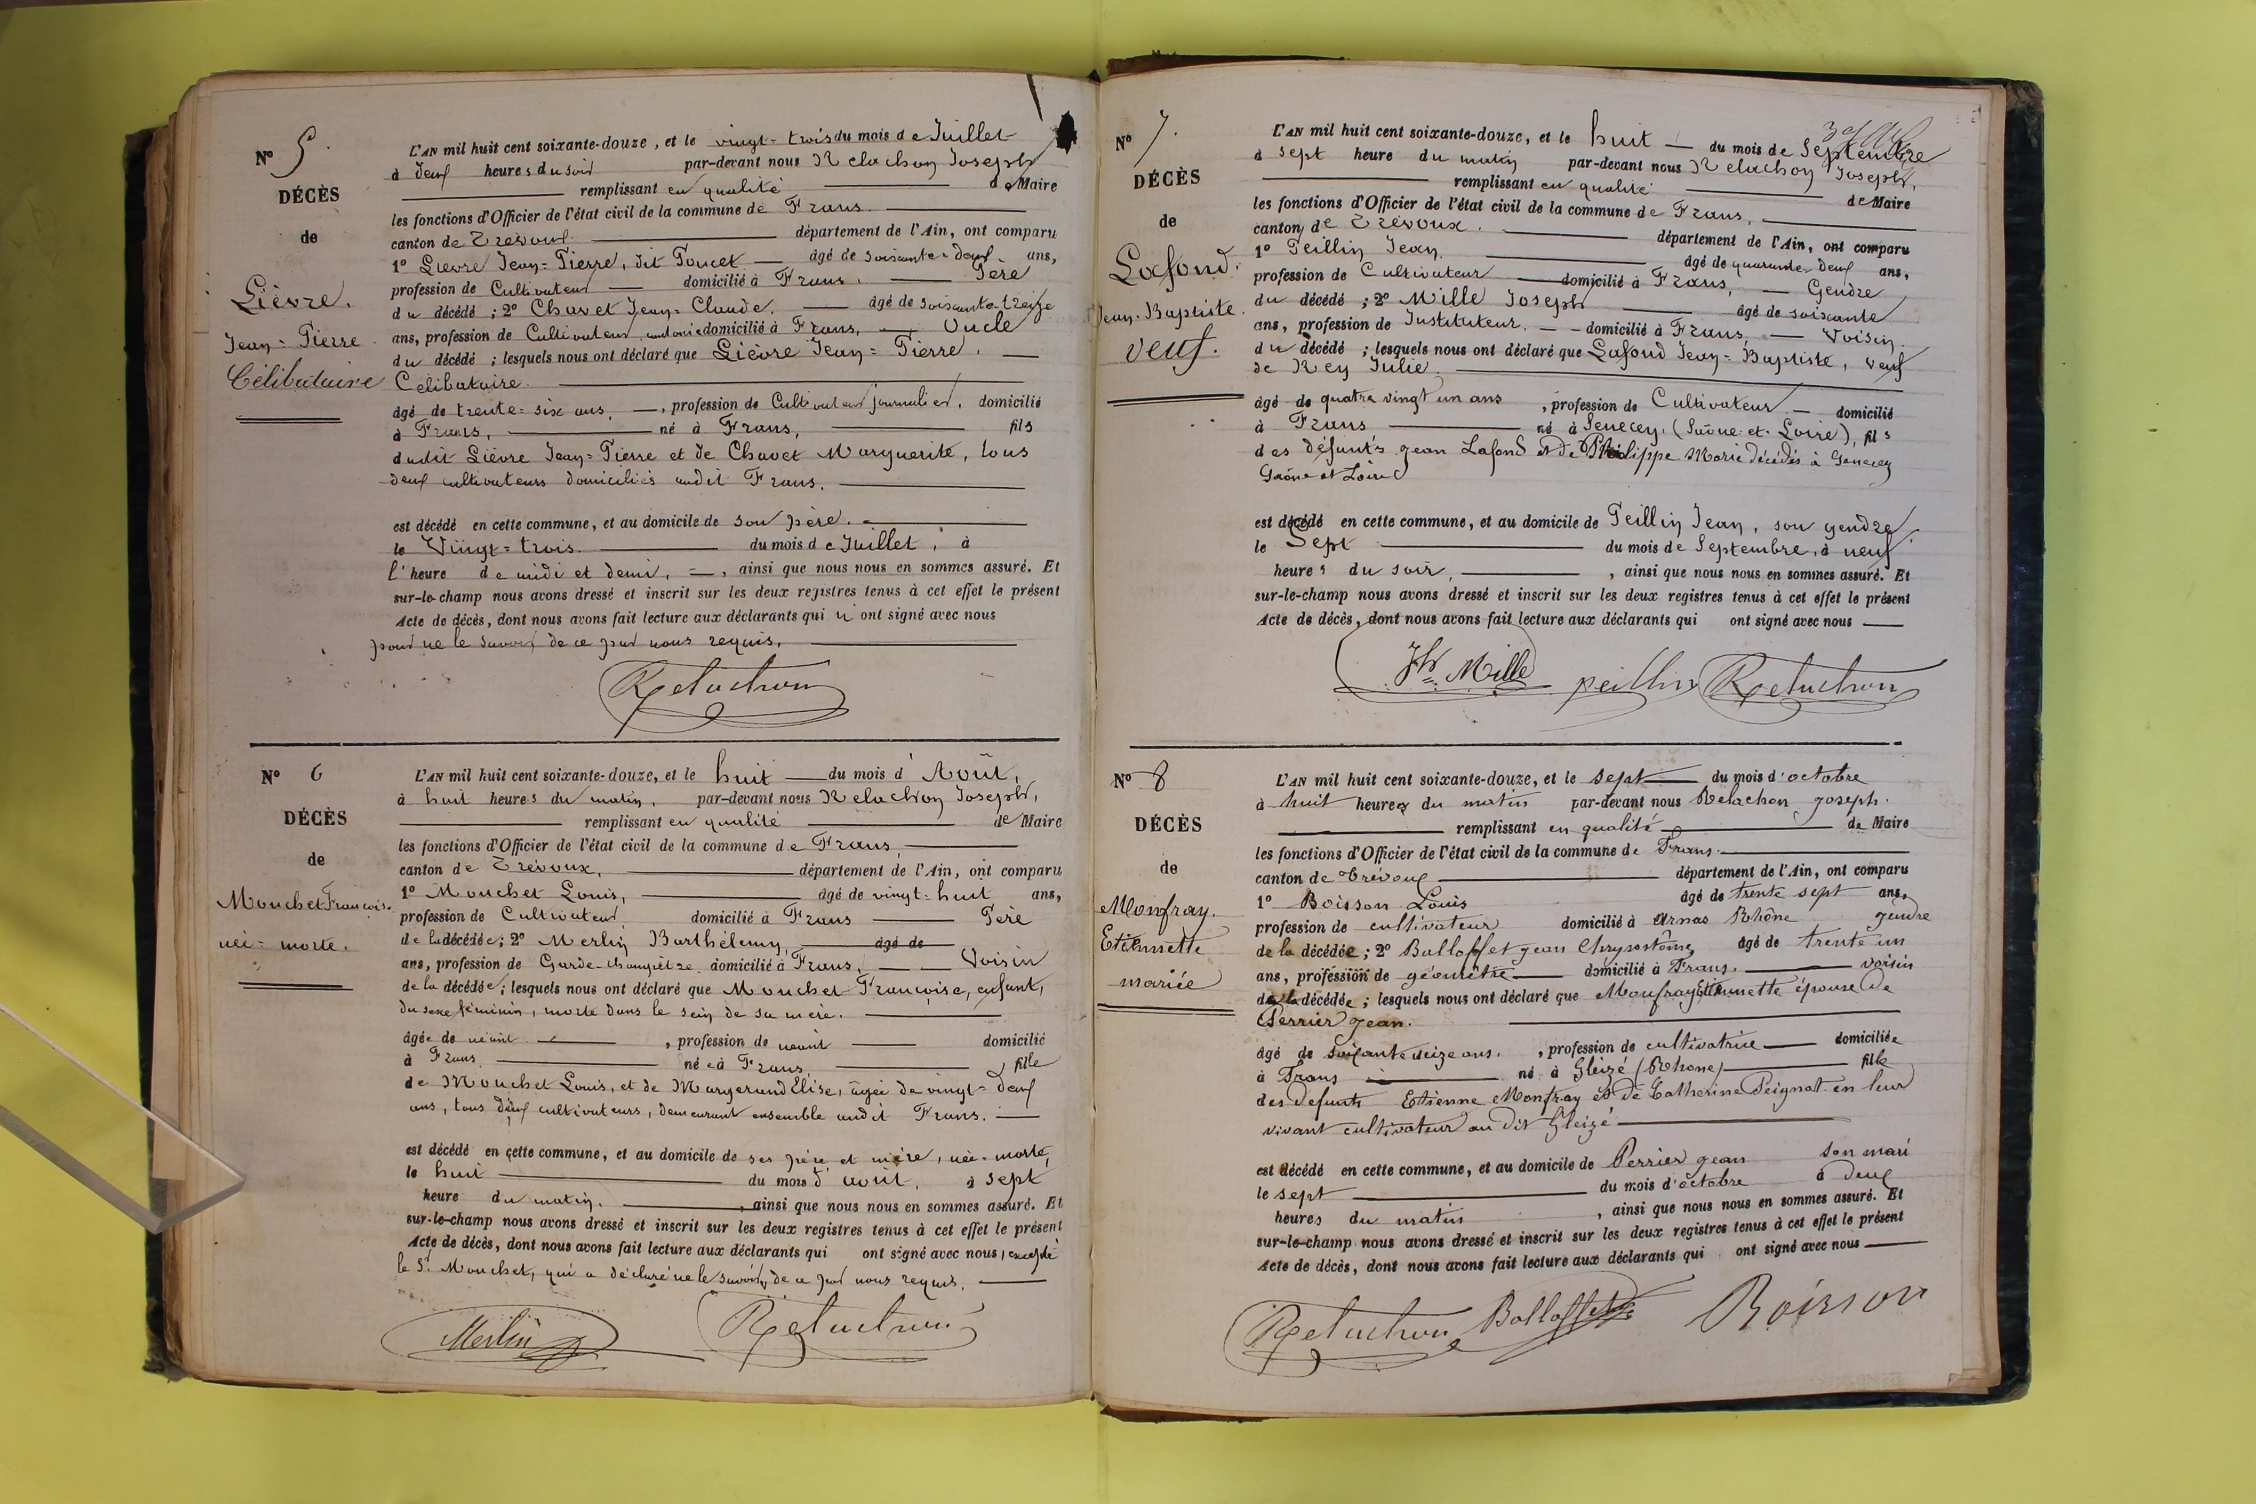 N° 5.
DÉCÈS
de
Lièvre.
Jean=Pierre
Célibataire
L'AN mil huit cent soixante-douze, et le vingt=trois du mois de Juillet
à deux heures du soir par-devant nous Relachon Joseph
remplissant en qualité de Maire
les fonctions d'Officier de l'état civil de la commune de Frans
canton de Trévoux département de l'Ain, ont comparu
1° Lièvre Jean=Pierre, dit Poncet âgé de soixante=deux ans,
profession de Cultivateur domicilié à Frans. Père
du décédé ; 2° Chavet Jean=Claude. âgé de soixante-treize
ans, profession de Cultivateur domicilié à Frans, Oncle
du décédé ; lesquels nous ont déclaré que Lièvre Jean=Pierre.
Célibataire.
âgé de trente=six ans, profession de Cultivateur journalier, domicilié
à Frans, né à Frans, fils
dudit Lièvre Jean=Pierre et de Chavet Marguerite, tous
deux cultivateurs domiciliés audit Frans.
est décédé en cette commune, et au domicile de son père.
le Vingt=trois. du mois de Juillet, à
l'heure de midi et demi, ainsi que nous nous en sommes assuré. Et
sur-le-champ nous avons dressé et inscrit sur les deux registres tenus à cet effet le présent
Acte de décès, dont nous avons fait lecture aux déclarants qui n'ont signé avec nous
pour ne le savoir de ce par nous requis.
Relachon
N° 6
DÉCÈS
de
Mouchet Françoise.
née=morte.
L'AN mil huit cent soixante-douze, et le huit du mois d'Août,
à huit heures du matin, par-devant nous Relachon Joseph,
remplissant en qualité de Maire
les fonctions d'Officier de l'état civil de la commune de Frans
canton de Trévoux, département de l'Ain, ont comparu
1° Mouchet Louis, âgé de vingt=huit ans,
profession de Cultivateur domicilié à Frans Père
de la décédée; 2° Merlin Barthélemy, âgé de
ans, profession de Garde-champêtre domicilié à Frans, Voisin
de la décédée; lesquels nous ont déclaré que Mouchet Françoise, enfant,
du sexe féminin, morte dans le sein de sa mère.
âgée de néant, profession de néant domicilié
à Frans née à Frans, fille
de Mouchet Louis, et de Margerand Elise, âgée de vingt=deux
ans, tous deux cultivateurs, demeurant ensemble audit Frans.
est décédé en cette commune, et au domicile de ses père et mère, née=morte,
le huit du mois d'août, à sept
heure du matin. ainsi que nous nous en sommes assuré. Et
sur-le-champ nous avons dressé et inscrit sur les deux registres tenus à cet effet le présent
Acte de décès, dont nous avons fait lecture aux déclarants qui ont signé avec nous, excepté
le Sr Mouchet, qui a déclaré ne le savoir, de ce par nous requis.
Merlin Relachon
N° 7.
DÉCÈS
de
Lafond.
Jean-Baptiste.
veuf.
L'AN mil huit cent soixante-douze, et le huit du mois de Septembre
à sept heure du matin par-devant nous Relachon Joseph,
remplissant en qualité de Maire
les fonctions d'Officier de l'état civil de la commune de Frans,
canton de Trévoux. département de l'Ain, ont comparu
1° Peillin Jean, âgé de quarante-deux ans,
profession de Cultivateur domicilié à Frans, Gendre
du décédé ; 2° Mille Joseph âgé de soixante
ans, profession de Instituteur. domicilié à Frans, Voisin.
du décédé ; lesquels nous ont déclaré que Lafond Jean=Baptiste, veuf
de Rey Julie.
âgé de quatre vingt un ans, profession de Cultivateur domicilié
à Frans né à Senecey. (Saône-et-Loire), fils
des défunts jean Lafond et de Philippe Marie décédés à Senecey
Saône et Loire
est décédé en cette commune, et au domicile de Peillin Jean, son gendre
le Sept du mois de Septembre, à neuf
heures du soir, ainsi que nous nous en sommes assuré. Et
sur-le-champ nous avons dressé et inscrit sur les deux registres tenus à cet effet le présent
Acte de décès, dont nous avons fait lecture aux déclarants qui ont signé avec nous
Jh Mille peillin Relachon
N° 8
DÉCÈS
de
Monfray.
Etiennette
mariée
L'AN mil huit cent soixante-douze, et le sept du mois d'octobre
à huit heures du matin par-devant nous Relachon joseph.
remplissant en qualité de Maire
les fonctions d'Officier de l'état civil de la commune de Frans.
canton de Trévoux département de l'Ain, ont comparu
1° Boisson Louis âgé de trente sept ans,
profession de cultivateur domicilié à Arnas Rhône gendre
de la décédée ; 2° Balloffet jean Chrysostôme âgé de trente un
ans, profession de géomètre domicilié à Frans. voisin
de la décédée ; lesquels nous ont déclaré que Monfray Etiennette épouse de
Perrier jean.
âgé de soixante seize ans. , profession de cultivatrice domiciliée
à Frans né à Gleizé (Rhône) fille
des défunts Etienne Monfray et de Catherine Peignot en leur
vivant cultivateur au dit Gleizé
est décédé en cette commune, et au domicile de Perrier jean son mari
le sept du mois d'octobre à deux
heures du matin, ainsi que nous nous en sommes assuré. Et
sur-le-champ nous avons dressé et inscrit sur les deux registres tenus à cet effet le présent
Acte de décès, dont nous avons fait lecture aux déclarants qui ont signé avec nous
Relachon Balloffet Boisson